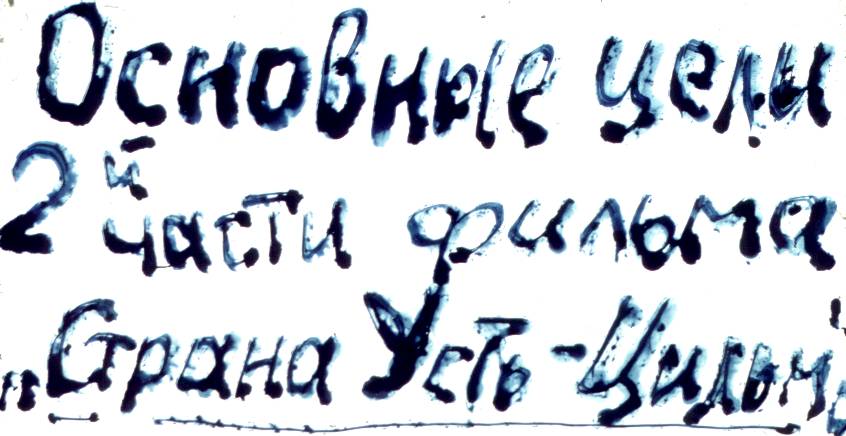 Основные цели
2й части фильма
„Страна Усть-Цильм"